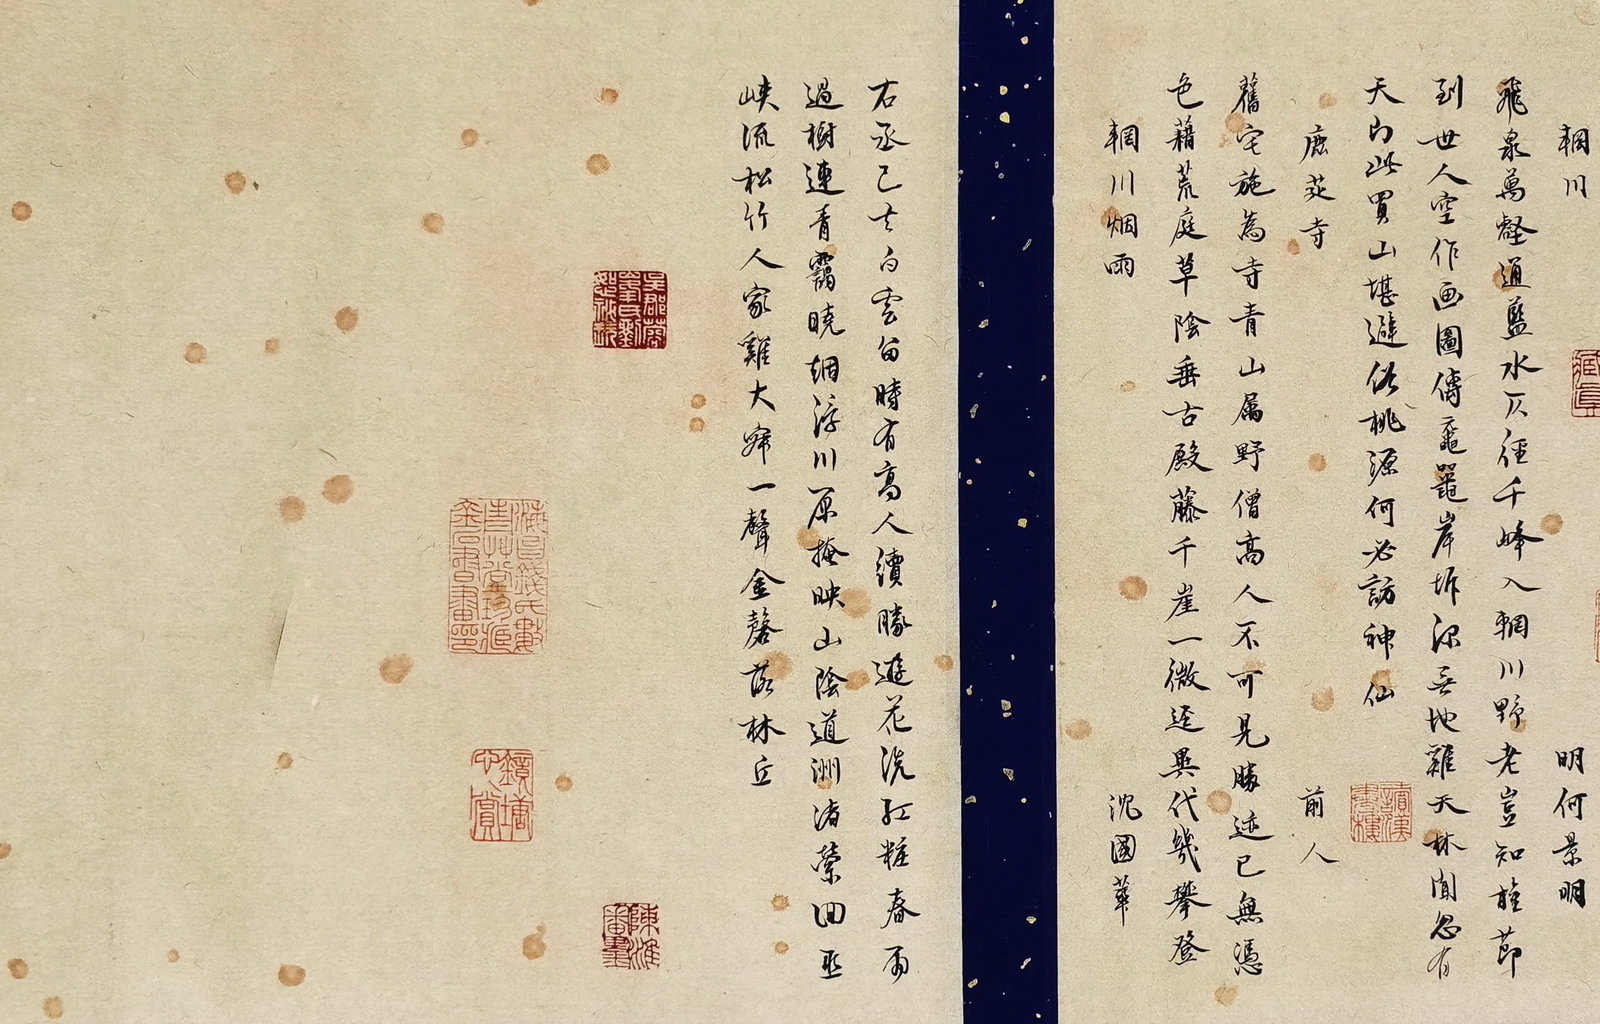 輞川　明何景明
飛泉萬壑通藍水仄徑千峰入輞川野老豈知旌節
到世人空作画圖傳黿鼉岸坼深無地雞犬林間忽有
天即此買山堪避俗桃源何必訪神仙
鹿苑寺　前人
舊宅施為寺青山属野僧高人不可見勝迹已無憑
色藉荒庭草陰垂古殿藤千崖一微逕異代幾攀登
輞川烟雨　沈國華
右丞已去白雲留時有高人續勝遊花洗紅粧春雨
過樹連青靄曉烟浮川原掩映山陰道洲渚縈回巫
峽流松竹人家雞犬寂一聲金磬落林丘
陳淮
審畫